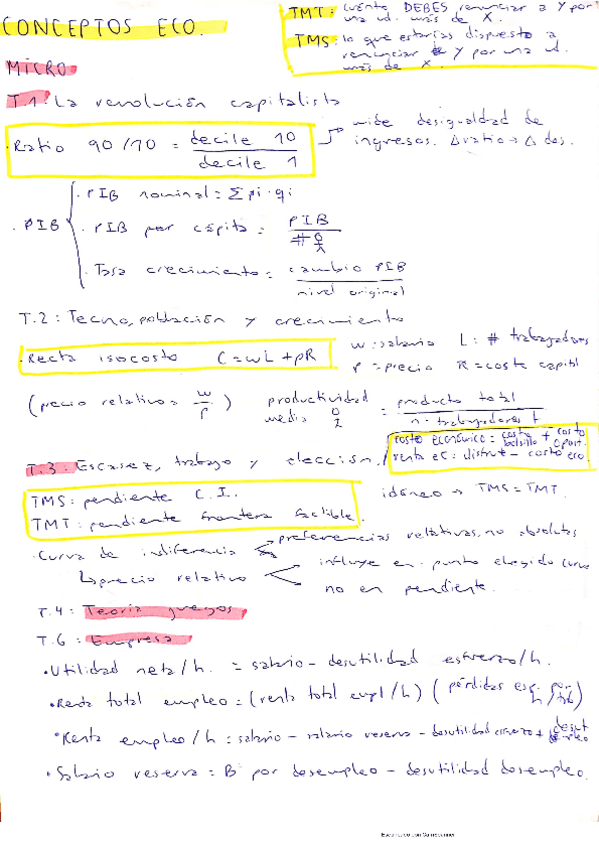 CONCEPTOS ECO.
TMT: cuánto DEBES renunciar a Y por
una ud. más de X.
TMS: lo que estarías dispuesto a
renunciar de Y por una ud.
más de X.
MICRO
T.1: La revolución capitalista
· Ratio 90/10 = decile 10 / decile 1
mide desigualdad de
ingresos. Δ ratio → Δ des.
· PIB
· PIB nominal = Σ pi · qi
· PIB por cápita = PIB / #
· Tasa crecimiento = cambio PIB / nivel original
T.2: Tecno, población y crecimiento
· Recta isocosto C = wL + pR
w: salario L: # trabajadores
p = precio R = coste capital
(pecio relativo = w/p)
productividad media = producto total / n. trabajadores
costo económico = costo bolsillo + costo oport.
renta ec: disfrut - costo eco.
T.3: Escasez, trabajo y elección
TMS: pendiente C.I.
TMT: pendiente frontera factible.
idóneo → TMS = TMT
· Curva de indiferencia
preferencias relativas, no absolutas
↳ precio relativo
influye en: punto elegido curva
no en pendiente.
T.4: Teoría juegos
T.6: Empresa
· Utilidad neta/h. = salario - desutilidad esfuerzo/h.
· Renta total empleo = (renta total empl/h) (pérdidas esp. por h/trb)
· Renta empleo/h = salario - salario reserva - desutilidad esfuerzo + desut
· Salario reserva = B por desempleo - desutilidad desempleo.
Escaneado con CamScanner